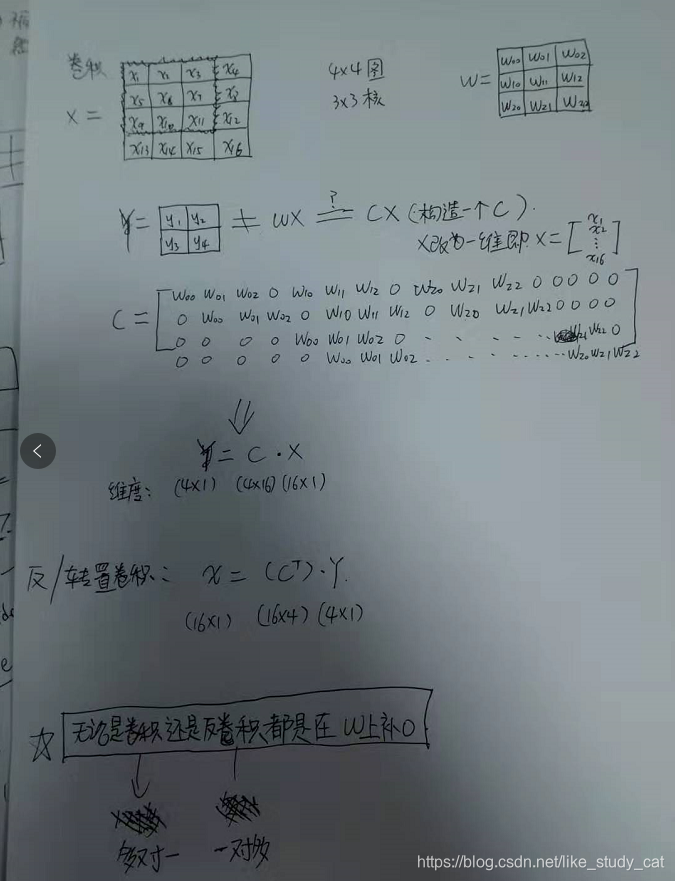 卷积
X =
x1 x2 x3 x4
x5 x6 x7 x8
x9 x10 x11 x12
x13 x14 x15 x16
4x4 图
3x3 核
W =
W00 W01 W02
W10 W11 W12
W20 W21 W22
Y = y1 y2 y3 y4 ≠ WX ?= CX (构造一个C).
X改为一维即 X = [x1 x2 ⋮ x16]
C =
W00 W01 W02 0 W10 W11 W12 0 W20 W21 W22 0 0 0 0 0
0 W00 W01 W02 0 W10 W11 W12 0 W20 W21 W22 0 0 0 0
0 0 0 0 W00 W01 W02 0 · · · · · · W21 W22 0
0 0 0 0 0 W00 W01 W02 · · · · · · · · · W20 W21 W22
⇓
Y = C · X
维度: (4x1) (4x16) (16x1)
反/转置卷积: x = (C^T)·Y.
(16x1) (16x4) (4x1)
☆ 无论是卷积还是反卷积,都是在W上补0
多对一 一对多
https://blog.csdn.net/like_study_cat